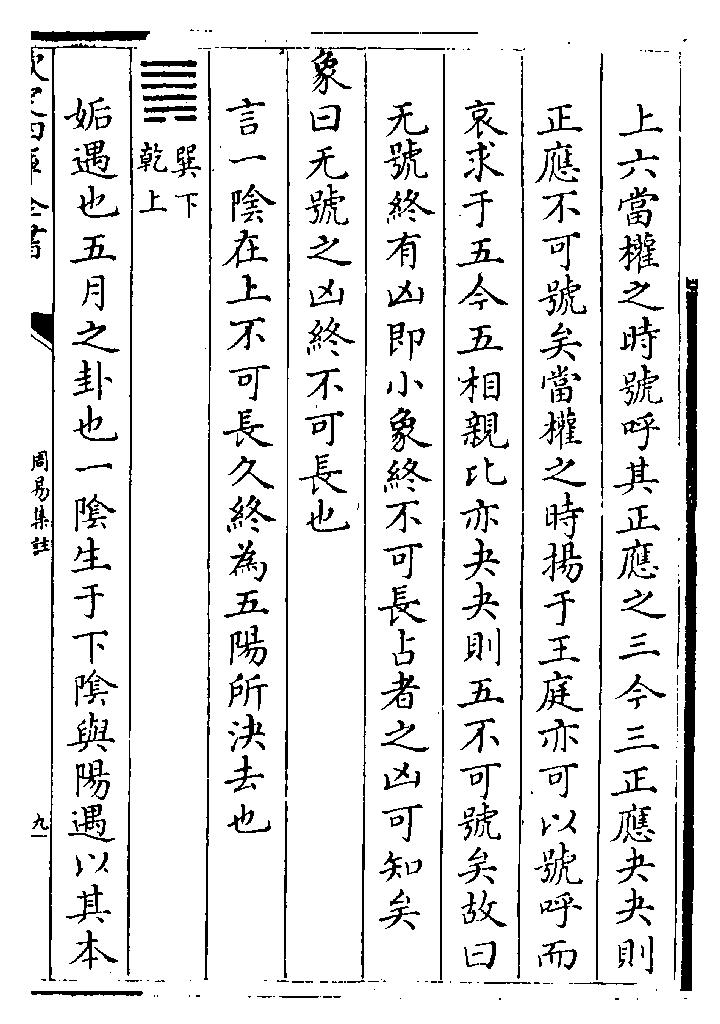 上六當權之時號呼其正應之三今三正應夬夬則
正應不可號矣當權之時揚于王庭亦可以號呼而
哀求于五今五相親比亦夬夬則五不可號矣故曰
无號終有凶即小象終不可長占者之凶可知矣
象曰无號之凶終不可長也
言一陰在上不可長久終為五陽所決去也
䷫
巽下
乾上
姤遇也五月之卦也一陰生于下陰與陽遇以其本
欽定四庫全書
周易集註
九